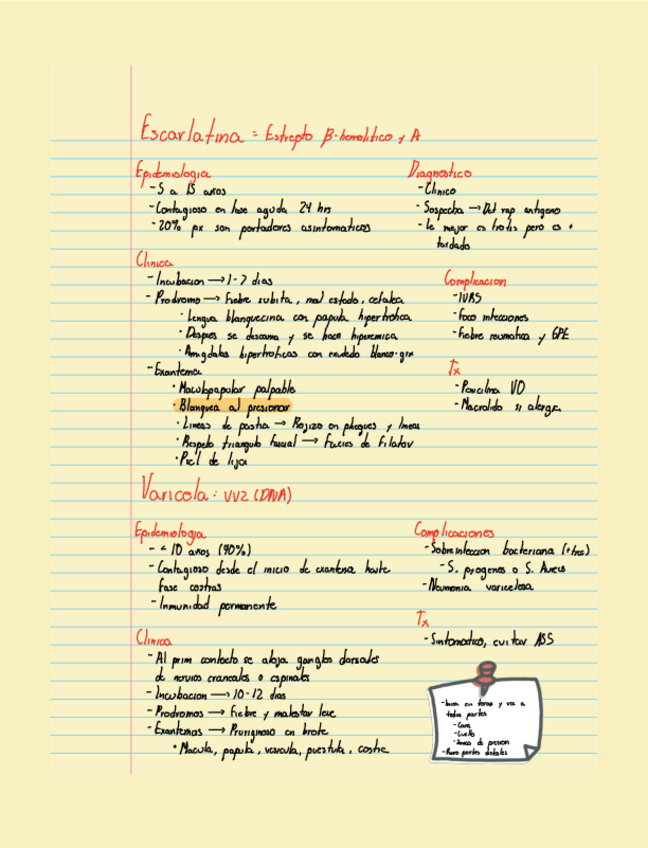 Escarlatina = Estrepto β-hemolitico y A
Epidemiologia
- 5 a 15 años
- Contagioso en fase aguda 24 hrs
- 20% px son portadores asintomaticos
Clinica
- Incubacion → 1-7 dias
- Prodromo → Fiebre subita, mal estado, cefalea
• Lengua blanquecina con papula hipertrofica
• Despues se descama y se hace hiperemica
• Amigdalas hipertroficas con exudado blanco-gris
- Exantema
• Maculopapular palpable
• Blanquea al presionar
• Lineas de pastia → Rojizo en pliegues y lineas
• Respeta triangulo facial → Facies de Filatov
• Piel de lija
Diagnostico
- Clinico
- Sospecha → Det rap antigeno
- Le mejor es frotis pero es +
tardado
Complicacion
- IVRS
- Foco infecciones
- Fiebre reumatica y GPE
Tx
- Penicilina VO
- Macrolido si alergia
Varicela: VVZ (DNA)
Epidemiologia
- < 10 años (90%)
- Contagioso desde el inicio de exantema hasta
fase costras
- Inmunidad permanente
Clinica
- Al prim contacto se aloja ganglios dorsales
de nervios craneales o espinales
- Incubacion → 10-12 dias
- Prodromos → Fiebre y malestar leve
- Exantemas → Pruriginoso en brote
• Macula, papula, vesicula, pustula, costra
Complicaciones
- Sobreinfeccion bacteriana (+frec)
- S. pyogenes o S. Aureus
- Neumonia varicelosa
Tx
- Sintomatico, evitar ASS
- Inicia en torax y va a
todas partes
- Cara
- Cuello
- Zonas de presion
- Raro partes distales